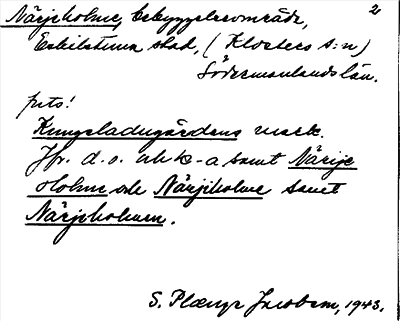 2
Närjeholme, bebyggelseområde,
Eskilstuna stad, (Klosters s:n)
Södermanlands län.
prts!
Kungsladugårdens mark.
Jfr. d.o. uh k-a samt Närije
Holme och Närjiholme samt
Närjeholmen.
S. Plænge Jacobsen, 1943.